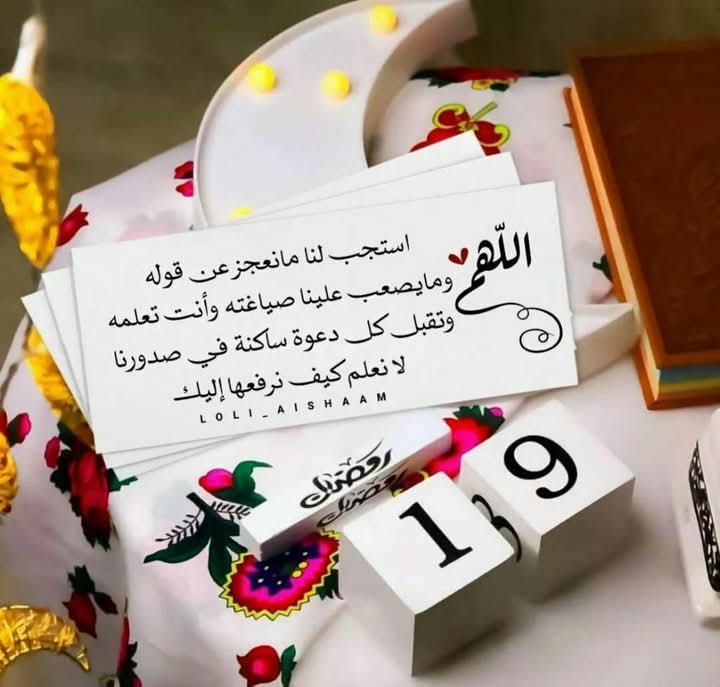 اللّهم
استجب لنا مانعجز عن قوله
ومايصعب علينا صياغته وأنت تعلمه
وتقبل كل دعوة ساكنة في صدورنا
لا نعلم كيف نرفعها إليك
LOLI_AISHAAM
رمضان
19